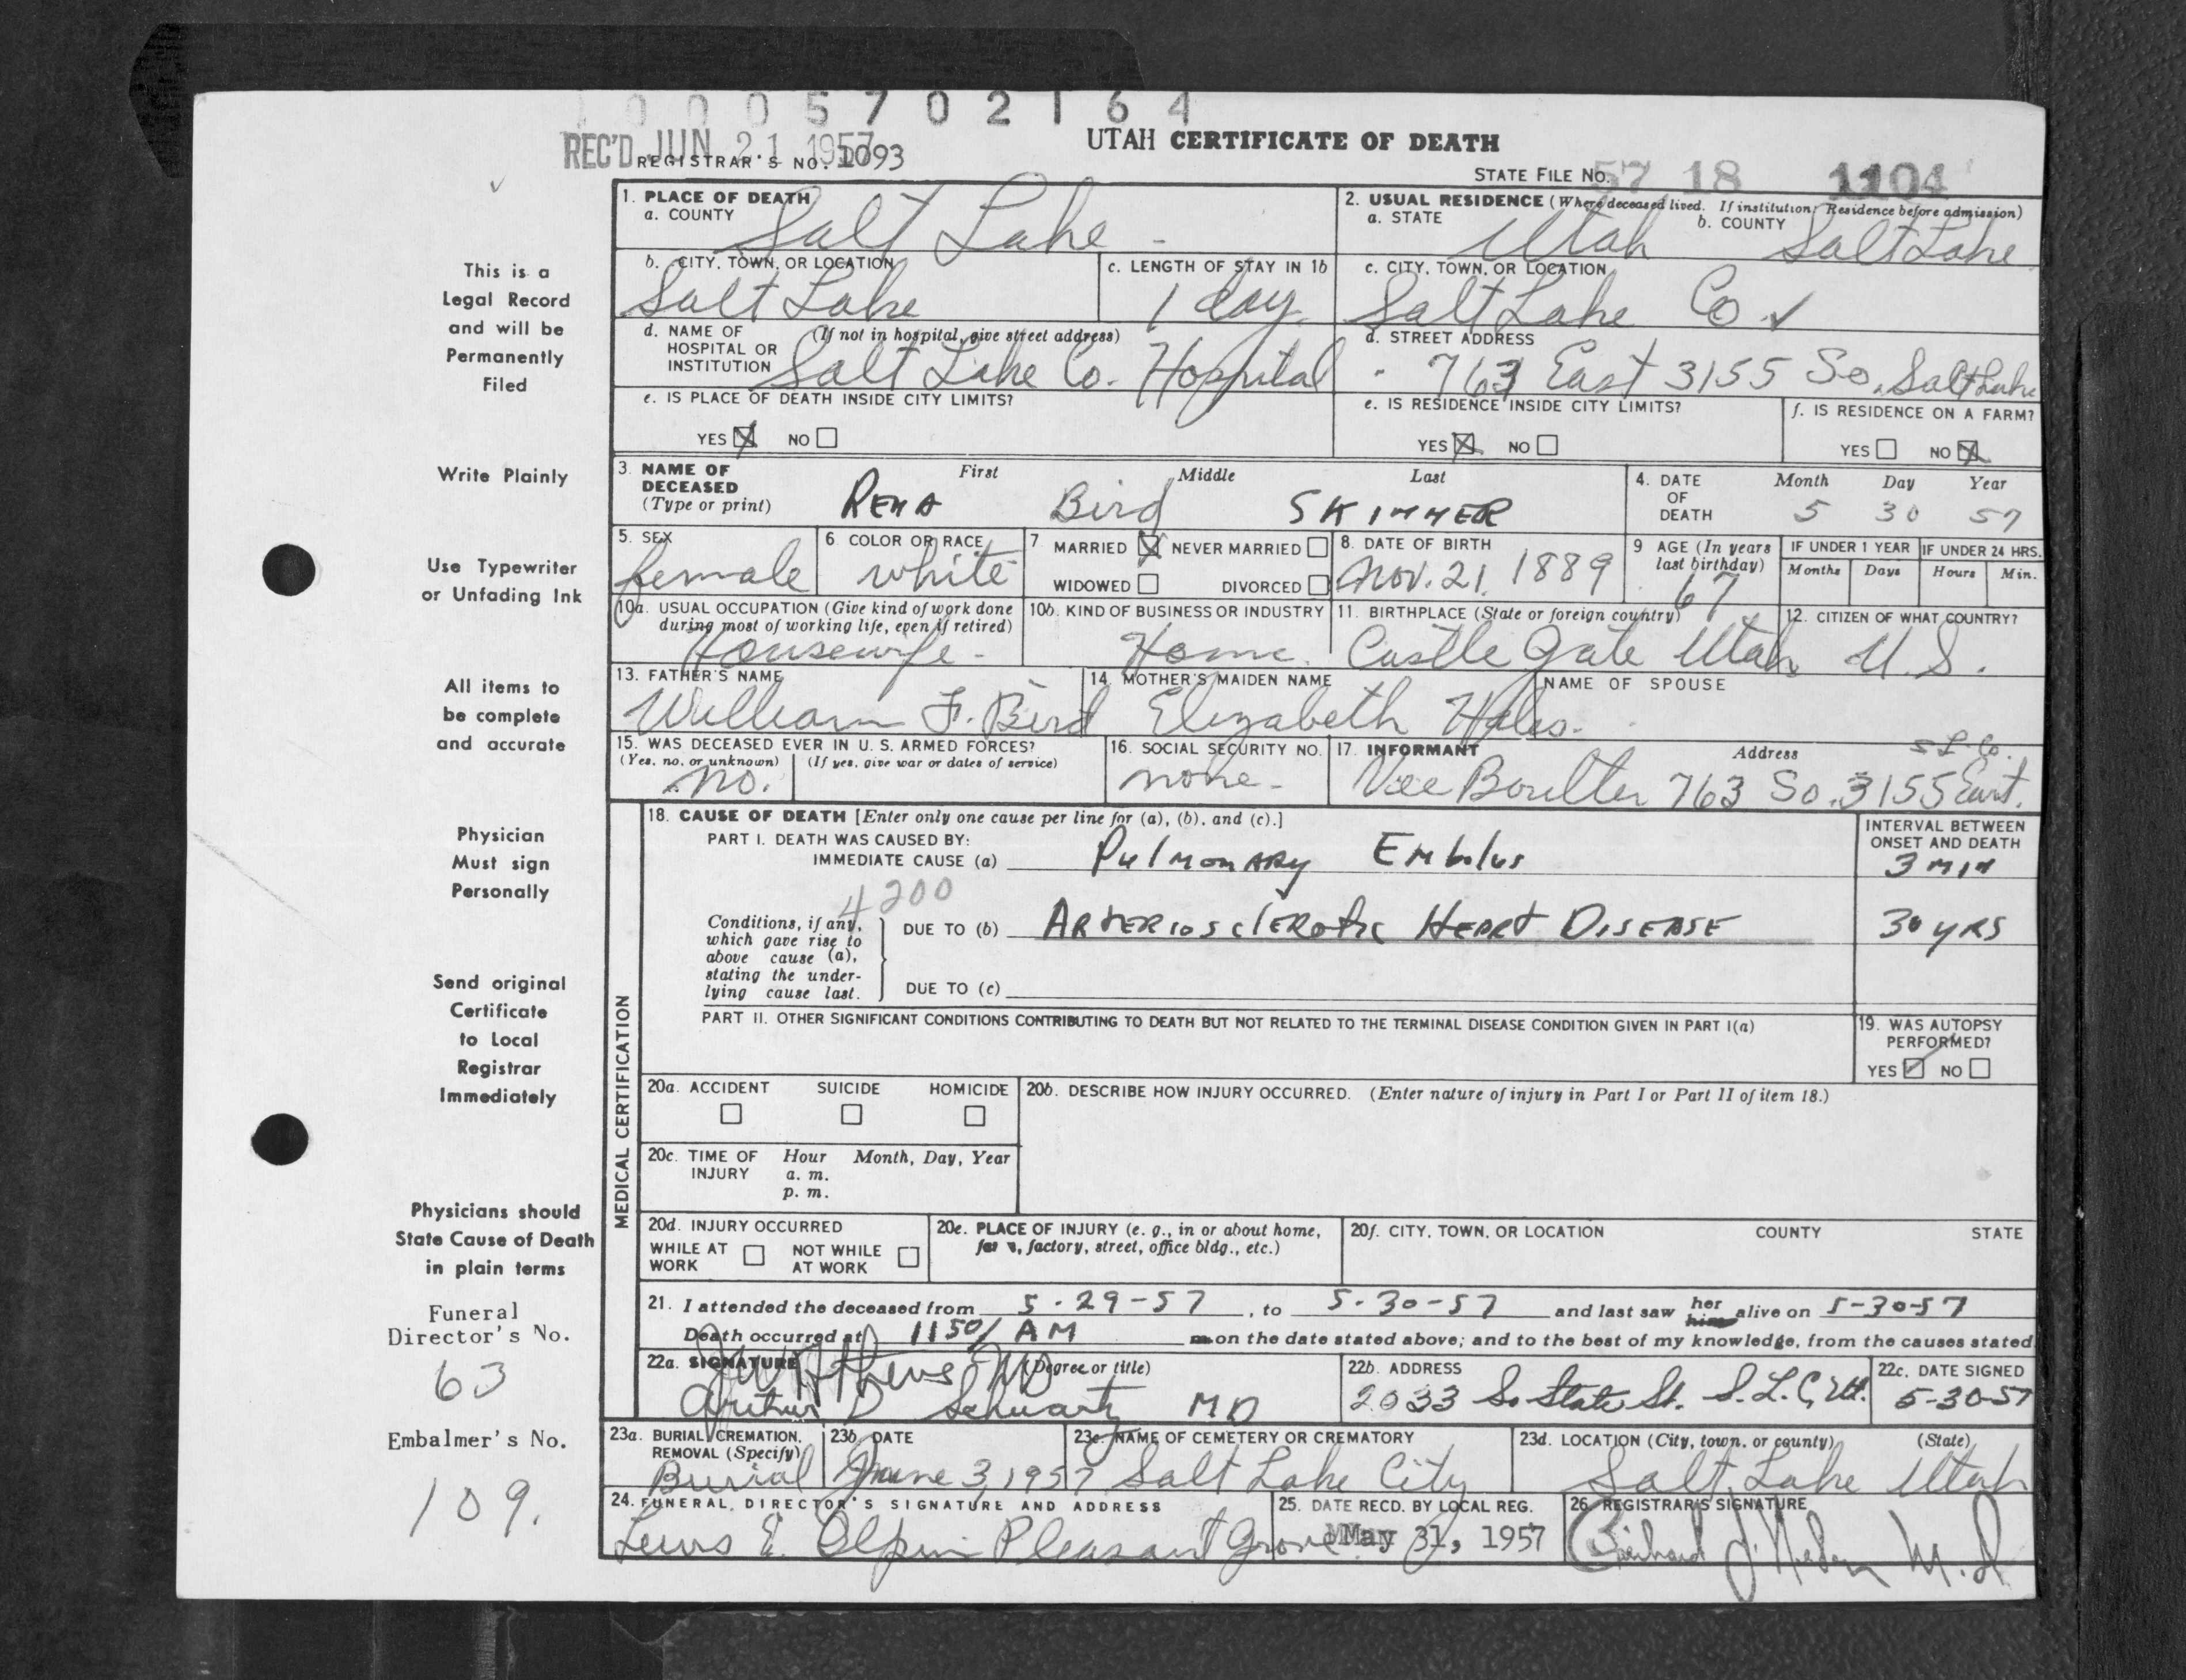 0 0 0 5 7 0 2 1 6 4
UTAH CERTIFICATE OF DEATH
REC'D JUN 21 1957
REGISTRAR'S NO. 1093
STATE FILE NO. 57 18 1104
1. PLACE OF DEATH
a. COUNTY Salt Lake
2. USUAL RESIDENCE (Where deceased lived. If institution: Residence before admission)
a. STATE Utah b. COUNTY Salt Lake
b. CITY, TOWN, OR LOCATION Salt Lake
c. LENGTH OF STAY IN 1b 1 day
c. CITY, TOWN, OR LOCATION Salt Lake Co ✓
d. NAME OF HOSPITAL OR INSTITUTION (If not in hospital, give street address) Salt Lake Co. Hospital
d. STREET ADDRESS 763 East 3155 So. Salt Lake
e. IS PLACE OF DEATH INSIDE CITY LIMITS?
YES ☒ NO ☐
e. IS RESIDENCE INSIDE CITY LIMITS?
YES ☒ NO ☐
f. IS RESIDENCE ON A FARM?
YES ☐ NO ☒
3. NAME OF DECEASED (Type or print)
First Middle Last
RENA Bird SKINNER
4. DATE OF DEATH Month Day Year
5 30 57
5. SEX female
6. COLOR OR RACE white
7. MARRIED ☒ NEVER MARRIED ☐
WIDOWED ☐ DIVORCED ☐
8. DATE OF BIRTH Nov. 21, 1889
9 AGE (In years last birthday) 67
IF UNDER 1 YEAR Months Days
IF UNDER 24 HRS. Hours Min.
10a. USUAL OCCUPATION (Give kind of work done during most of working life, even if retired) Housewife -
10b. KIND OF BUSINESS OR INDUSTRY Home.
11. BIRTHPLACE (State or foreign country) Castle Gate Utah
12. CITIZEN OF WHAT COUNTRY? U.S.
13. FATHER'S NAME William F. Bird
14. MOTHER'S MAIDEN NAME Elizabeth Hales.
NAME OF SPOUSE
15. WAS DECEASED EVER IN U. S. ARMED FORCES?
(Yes, no, or unknown) (If yes, give war or dates of service)
no.
16. SOCIAL SECURITY NO. none -
17. INFORMANT Address S L Co.
Vee Boulter 763 So. 3155 East.
MEDICAL CERTIFICATION
18. CAUSE OF DEATH [Enter only one cause per line for (a), (b), and (c).]
INTERVAL BETWEEN ONSET AND DEATH
PART I. DEATH WAS CAUSED BY:
IMMEDIATE CAUSE (a) Pulmonary Embolus 3 min
4200
Conditions, if any, which gave rise to above cause (a), stating the underlying cause last.
DUE TO (b) ARTERIOSCLEROTIC HEART DISEASE 30 YRS
DUE TO (c)
PART II. OTHER SIGNIFICANT CONDITIONS CONTRIBUTING TO DEATH BUT NOT RELATED TO THE TERMINAL DISEASE CONDITION GIVEN IN PART I(a)
19. WAS AUTOPSY PERFORMED?
YES ☑ NO ☐
20a. ACCIDENT SUICIDE HOMICIDE
☐ ☐ ☐
20b. DESCRIBE HOW INJURY OCCURRED. (Enter nature of injury in Part I or Part II of item 18.)
20c. TIME OF INJURY Hour Month, Day, Year
a. m.
p. m.
20d. INJURY OCCURRED
WHILE AT WORK ☐ NOT WHILE AT WORK ☐
20e. PLACE OF INJURY (e. g., in or about home, farm, factory, street, office bldg., etc.)
20f. CITY, TOWN, OR LOCATION COUNTY STATE
21. I attended the deceased from 5-29-57, to 5-30-57 and last saw her him alive on 5-30-57
Death occurred at 1150/ AM m on the date stated above; and to the best of my knowledge, from the causes stated
22a. SIGNATURE (Degree or title)
MD
Arthur D Schwartz MD
22b. ADDRESS 2033 So State St. S.L.C, Ut.
22c. DATE SIGNED 5-30-57
23a. BURIAL, CREMATION, REMOVAL (Specify) Burial
23b. DATE June 3, 1957
23c. NAME OF CEMETERY OR CREMATORY Salt Lake City
23d. LOCATION (City, town, or county) (State)
Salt Lake Utah
24. FUNERAL DIRECTOR'S SIGNATURE AND ADDRESS
Lewis E. Olpin Pleasant Grove
25. DATE RECD. BY LOCAL REG. May 31, 1957
26. REGISTRAR'S SIGNATURE
M.D
This is a
Legal Record
and will be
Permanently
Filed
Write Plainly
Use Typewriter
or Unfading Ink
All items to
be complete
and accurate
Physician
Must sign
Personally
Send original
Certificate
to Local
Registrar
Immediately
Physicians should
State Cause of Death
in plain terms
Funeral
Director's No.
63
Embalmer's No.
109.